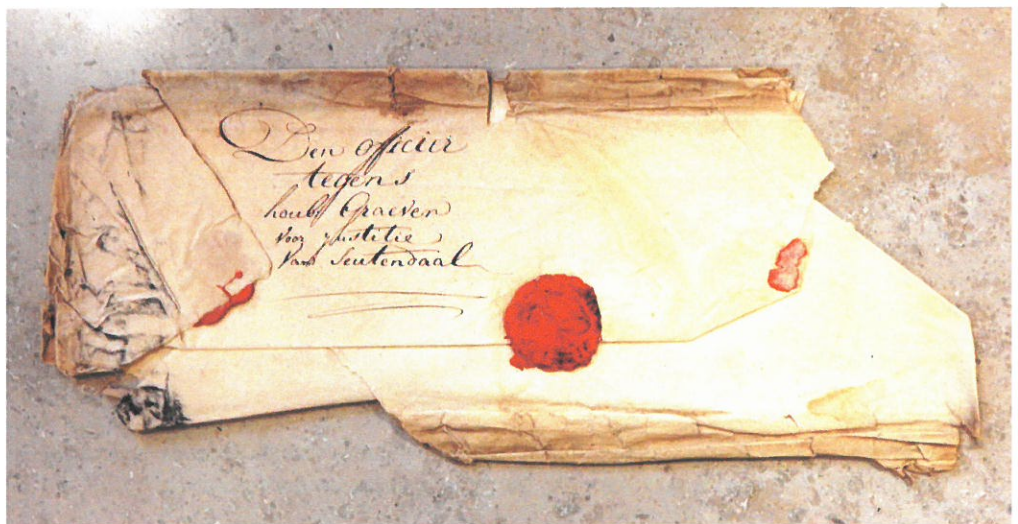 Den officier
tegens
houb Graeven
voor justitie
van Seutendaal